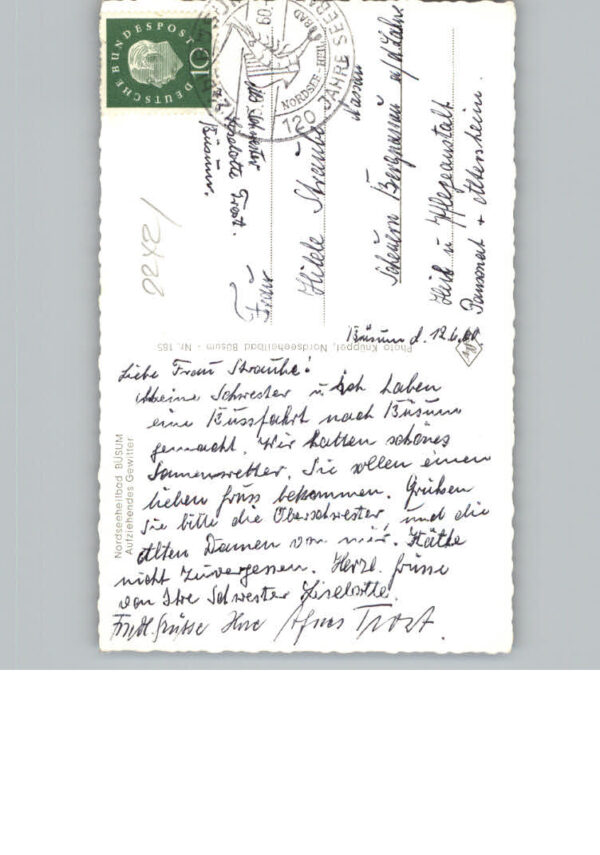 DEUTSCHE BUNDESPOST
10
120 JAHRE SEEBAD
NORDSEE-HEILBAD
60
Abs Schwester
Liselotte Trost.
Büsum.
Frau
Hilde Straube
Nassau
Scheuern Bergnassau a/d Lahn
Heil u Pflegeanstalt
Pensionat + Altersheim.
2242/
Photo Knüppel, Nordseeheilbad Büsum - Nr. 185
Nordseeheilbad BÜSUM
Aufziehendes Gewitter
Büsum d. 12.6.60.
Liebe Frau Straube!
Meine Schwester u. ich haben
eine Bussfahrt nach Büsum
gemacht. Wir hatten schönes
Sonnenwetter. Sie sollen einen
lieben Gruss bekommen. Grüßen
Sie bitte die Oberschwester, und die
alten Damen von mir. Käthe
nicht zuvergessen. Herzl. Grüsse
von Ihre Schwester Liselotte.
Frdl. Grüsse Ihre Agnes Trost.